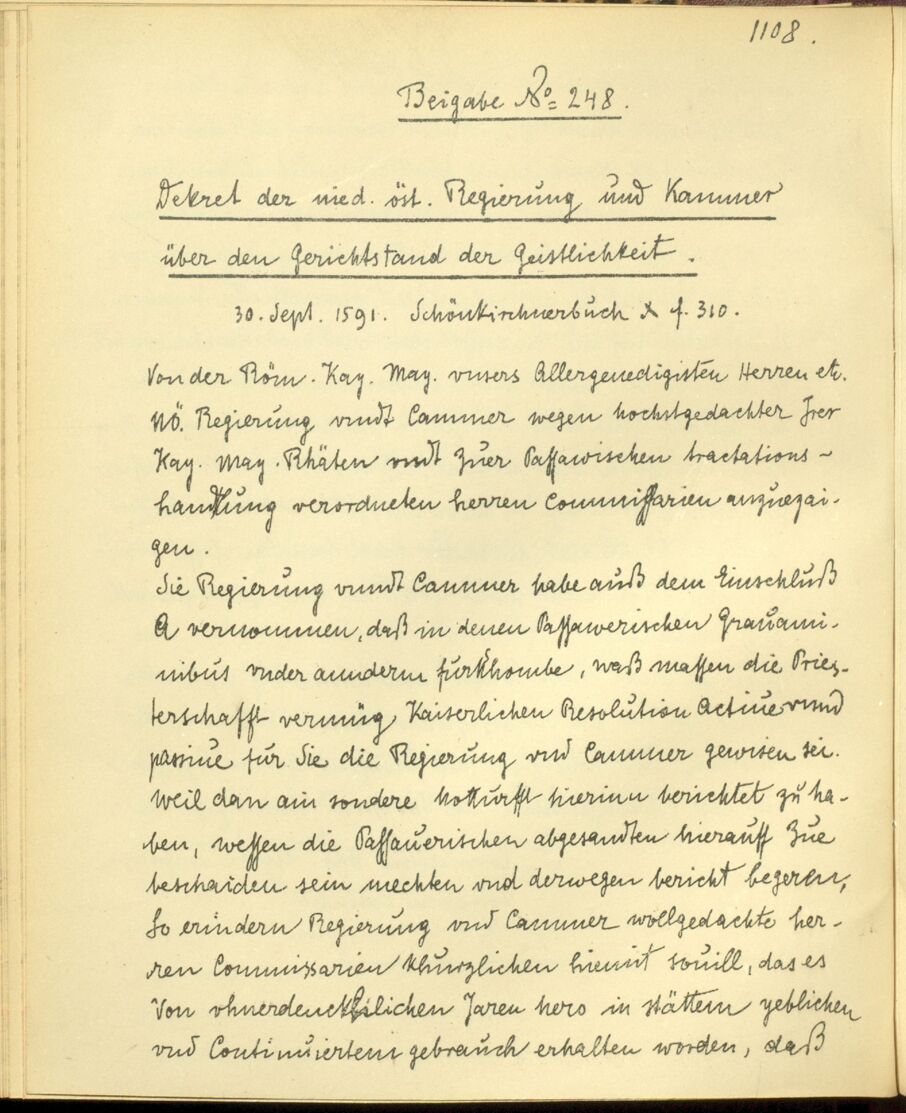 1108.
Beigabe No= 248.
Dekret der nied. öst. Regierung und Kammer
über den Gerichtstand der Geistlichkeit.
30. Sept. 1591. Schönkirchnerbuch X f. 310.
Von der Röm. Kay. May. vnsers Allergenedigisten Herren etc.
NÖ. Regierung vndt Cammer wegen hochstgedachter Irer
Kay. May. Rhäten vndt Zuer Passawischen tractations-
handtlung verordneten herren Commissarien anzuezai-
gen.
Sie Regierung vnndt Cammer habe auß dem Einschluß
A vernommen, daß in denen Passawerischen Grauami-
nibus vnder anndern fürkhombe, waß massen die Pries-
terschafft vermüg Kaiserlichen Resolution Actiue vnnd
passiue für Sie die Regierung vnd Cammer gewisen sei.
Weil dan ain sondere notturfft hierinn berichtet zu ha-
ben, wessen die Passauerischen abgesandten hierauff Zue
beschaiden sein mechten vnd derwegen bericht begeren,
So erindern Regierung vnd Cammer wollgedachte her-
ren Commissarien khurzlichen hiemit souill, das es
Von vhnerdenckhlichen Jaren hero in stättem yeblichen
vnd Continuiertem gebrauch erhalten worden, daß